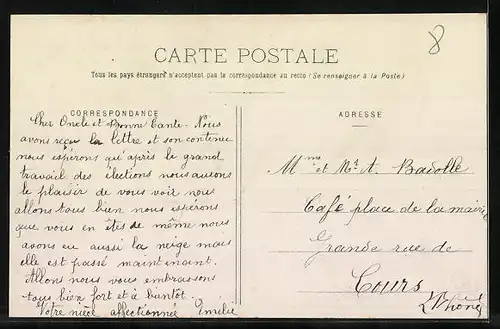 8
CARTE POSTALE
Tous les pays étrangers n'acceptent pas la correspondance au recto (Se renseigner à la Poste)
CORRESPONDANCE
ADRESSE
Cher Oncle et Bonne Tante. Nous
avons reçu la lettre et son contenu
nous espérons qu'après le grand
travail des élections nous aurons
le plaisir de vous voir nous
allons tous bien nous espérons
que vous en êtes de même nous
avons eu aussi la neige mais
elle est passé maintenant.
Allons nous vous embrassons
tous bien fort et à bientôt.
Votre nièce affectionnée Emilie
Mme et Mr A. Badolle
Café place de la mairie
Grande rue de
Cours
Rhône